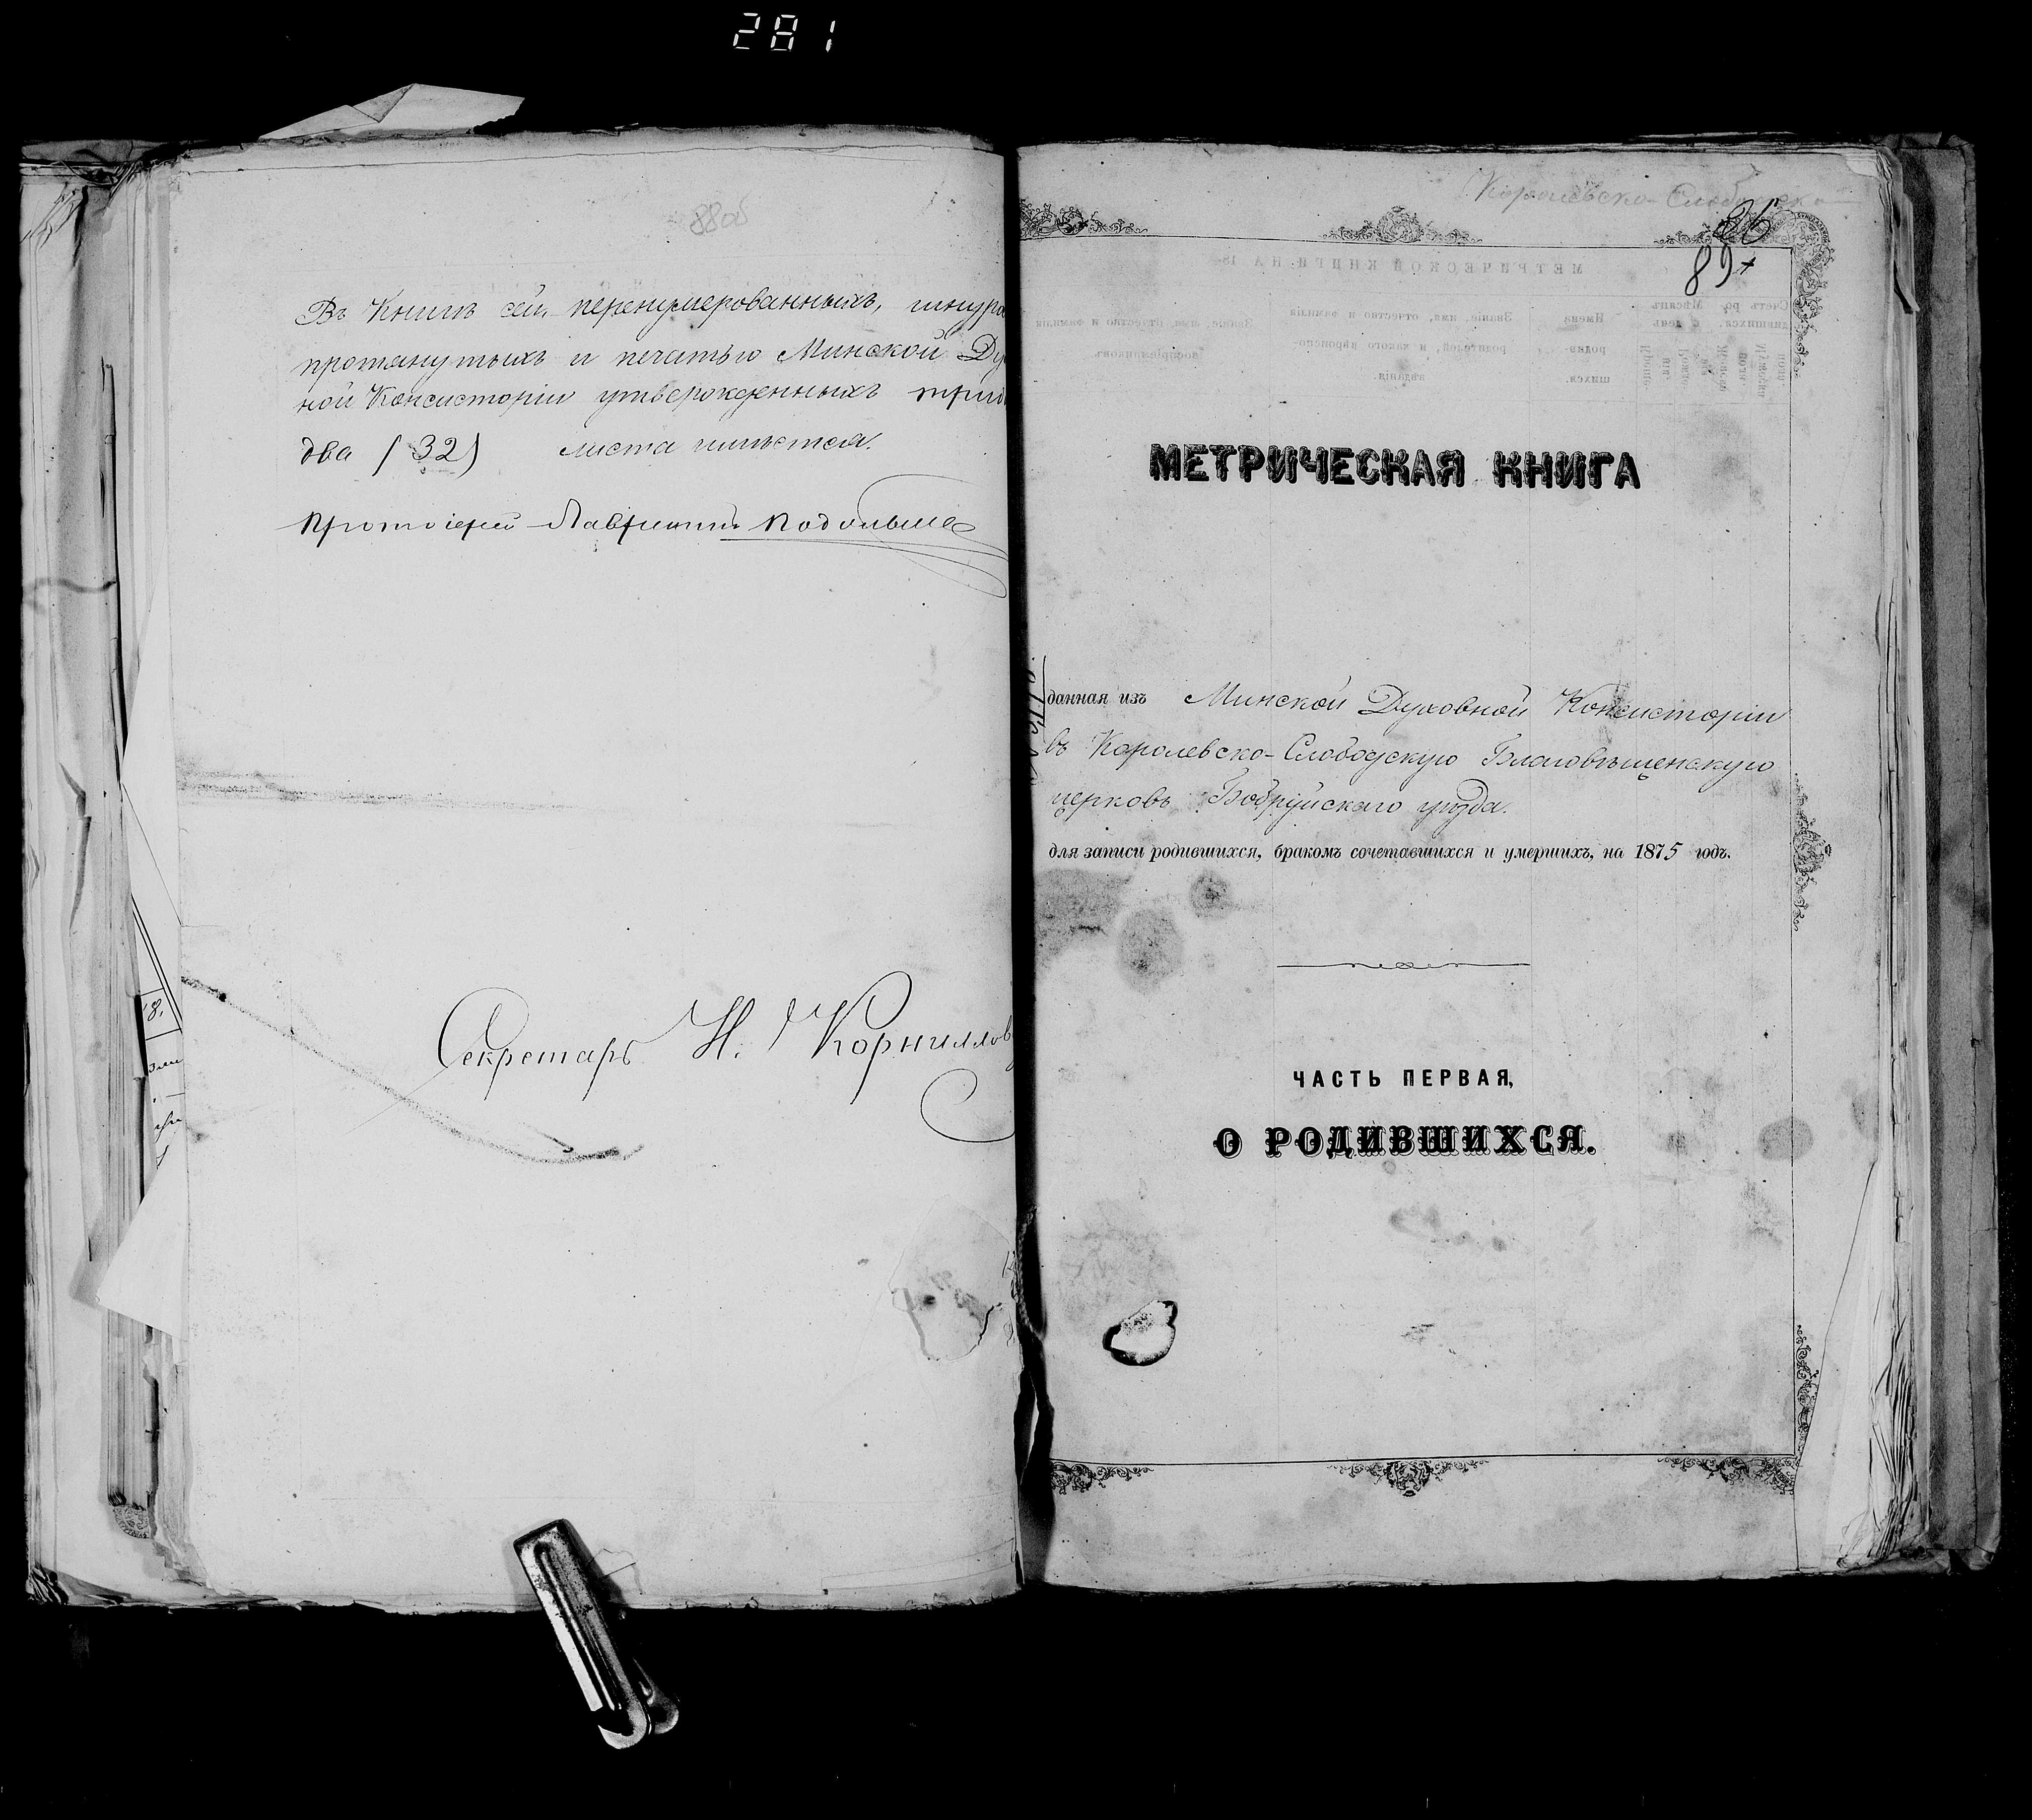 281
88об
Въ Книгѣ сей, перенумерованныхъ, шнуро
протянутыхъ и печатью Минской Ду
ной Консисторіи утвержденныхъ трид
два (32) листа имѣется.
Протоіерей Лаврентій
Секретарь Н. Корниллов
Королевско-Слободско
89
МЕТРИЧЕСКОЙ КНИГИ НА 18
МЕТРИЧЕСКАЯ КНИГА
данная изъ Минской Духовной Консисторіи
въ Королевско-Слободскую Благовѣщенскую
церковь Бобруйскаго уѣзда.
для записи родившихся, бракомъ сочетавшихся и умершихъ, на 1875 годъ.
ЧАСТЬ ПЕРВАЯ,
О РОДИВШИХСЯ.